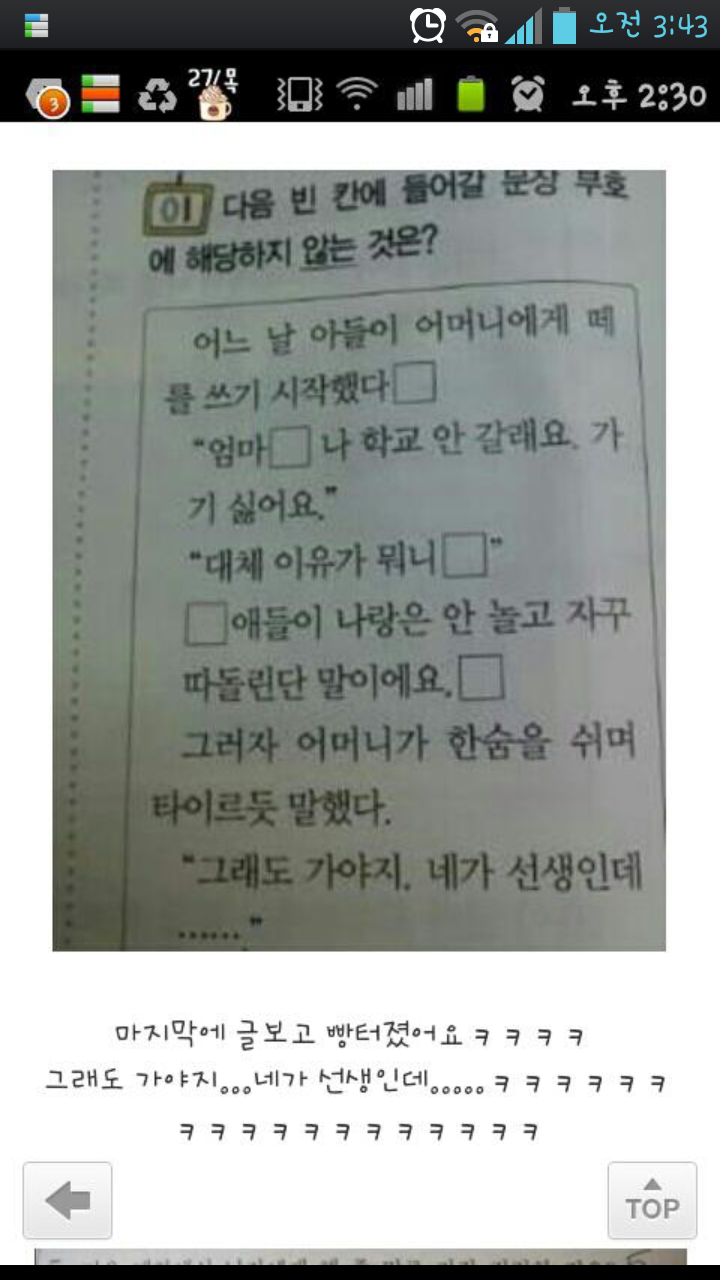 오전 3:43
3
27/목
오후 2:30
01 다음 빈 칸에 들어갈 문장 부호
에 해당하지 않는 것은?
어느 날 아들이 어머니에게 떼
를 쓰기 시작했다□
“엄마□ 나 학교 안 갈래요. 가
기 싫어요.”
“대체 이유가 뭐니□”
□애들이 나랑은 안 놀고 자꾸
따돌린단 말이에요.□
그러자 어머니가 한숨을 쉬며
타이르듯 말했다.
“그래도 가야지. 네가 선생인데
……”
마지막에 글보고 빵터졌어요ㅋㅋㅋㅋ
그래도 가야지...네가 선생인데.....ㅋㅋㅋㅋㅋㅋ
ㅋㅋㅋㅋㅋㅋㅋㅋㅋㅋㅋㅋ
TOP